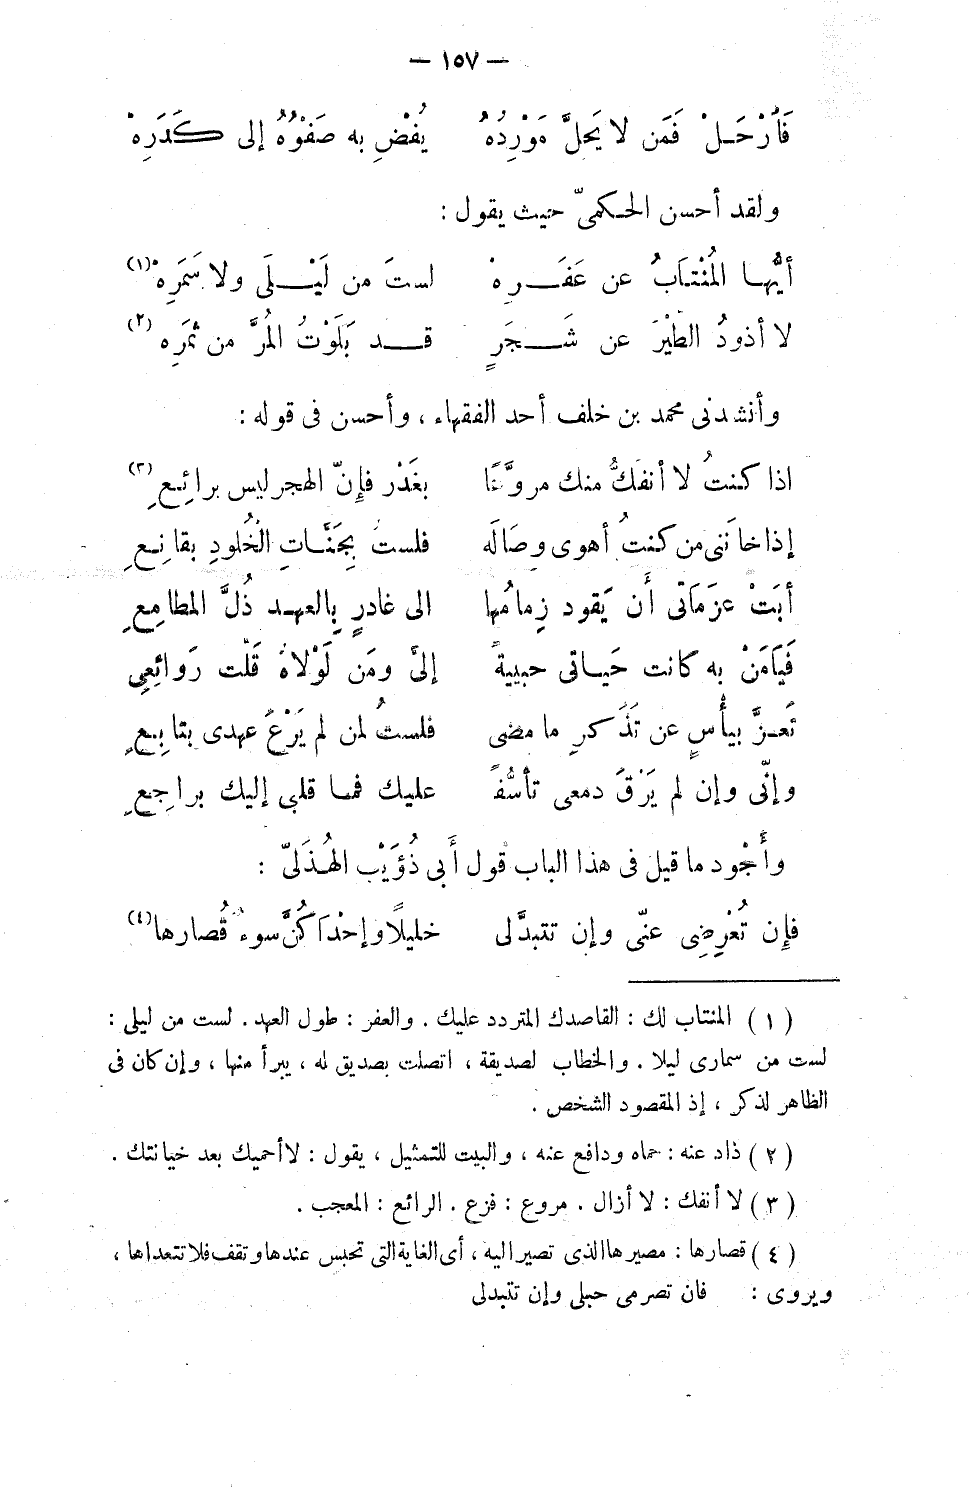 — ١٥٧ —
فَأَرْحَـلْ فَمَن لا يَحِلَّ مَوْرِدُهُ يُفْضِ به صَفْوُهُ إلى كَدَرِهْ
ولقد أحسن الحـكمىّ حيث يقول :
أيُّهـا المُنْتَابُ عن عَفَـــرِهْ لستَ من لَيْـــلَى ولا سَمَرِهْ(١)
لا أذودُ الطَّيْرَ عن شَـــجَرٍ قـــد بَلَوْتُ المُرَّ من ثمَرِه (٢)
وأنشدنى محمد بن خلف أحد الفقهاء ، وأحسن فى قوله :
اذا كنتُ لا أنفكُّ منك مروَّعًا بغَدْر فإنّ الهجر ليس برائِـعِ (٣)
إذا خانَنى من كنتُ أهوى وِصَالَه فلستُ بِجَنَّـاتِ الخُلودِ بقانِـعِ
أبَتْ عزَمَاتى أن يَقود زِمامُها الى غادرٍ بِالعهـد ذُلَّ المطامِعِ
فَيَامَنْ به كانت حَيـاتى حبيبةً إلىَّ ومَن لَوْلاهُ قَلَّت رَوائِعِى
تَعـزَّ بيأْسٍ عن تَذَكرِ ما مضى فلستُ لمن لم يَرْعَ عهدى بتابِـعٍ
وإنّى وإن لم يَرْقَ دمعى تأسُّفًا عليك فمـا قلبى إليك براجِـعِ
وأَجْود ما قيل فى هذا الباب قول أَبى ذُؤَيْب الهُذَلىّ :
فإن تُعْرِضِى عنّى وإن تتبدَّلى خليلًا وإحْدَاكُنَّ سوءٌ قُصارها(٤)
( ١ ) المنتاب لك : القاصدك المتردد عليك . والعفر : طول العهد . لست من ليلى :
لست من سمارى ليلا . والخطاب لصديقة ، اتصلت بصديق له ، يبرأ منها ، وإن كان فى
الظاهر لذكر ، إذ المقصود الشخص .
( ٢ ) ذاد عنه : حماه ودافع عنه ، والبيت للتمثيل ، يقول : لا أحميك بعد خيانتك .
( ٣ ) لا أنفك : لا أزال . مروع : فزع . الرائع : المعجب .
( ٤ ) قصارها : مصيرها الذى تصير اليه ، أى الغاية التى تحبس عندها وتقف فلا تتعداها ،
ويروى : فان تصرمى حبلى وإن تتبدلى